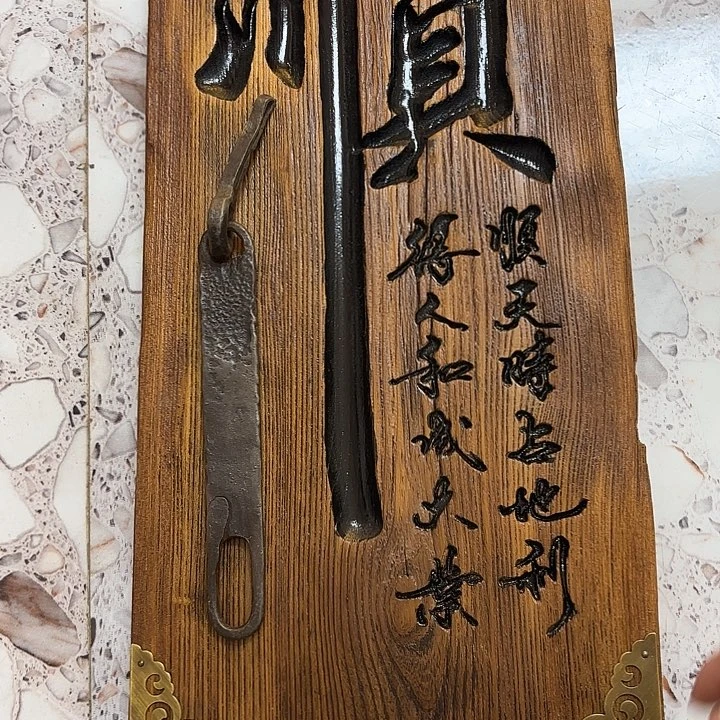 順
順天時占地利
得人和成大業